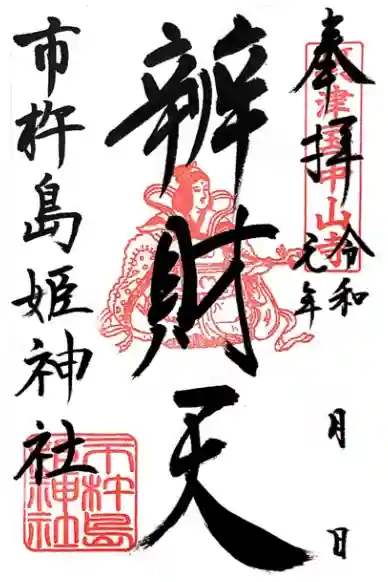 奉拝
令和
元年
月 日
辨財天
市杵島姫神社
市杵島
姫神社